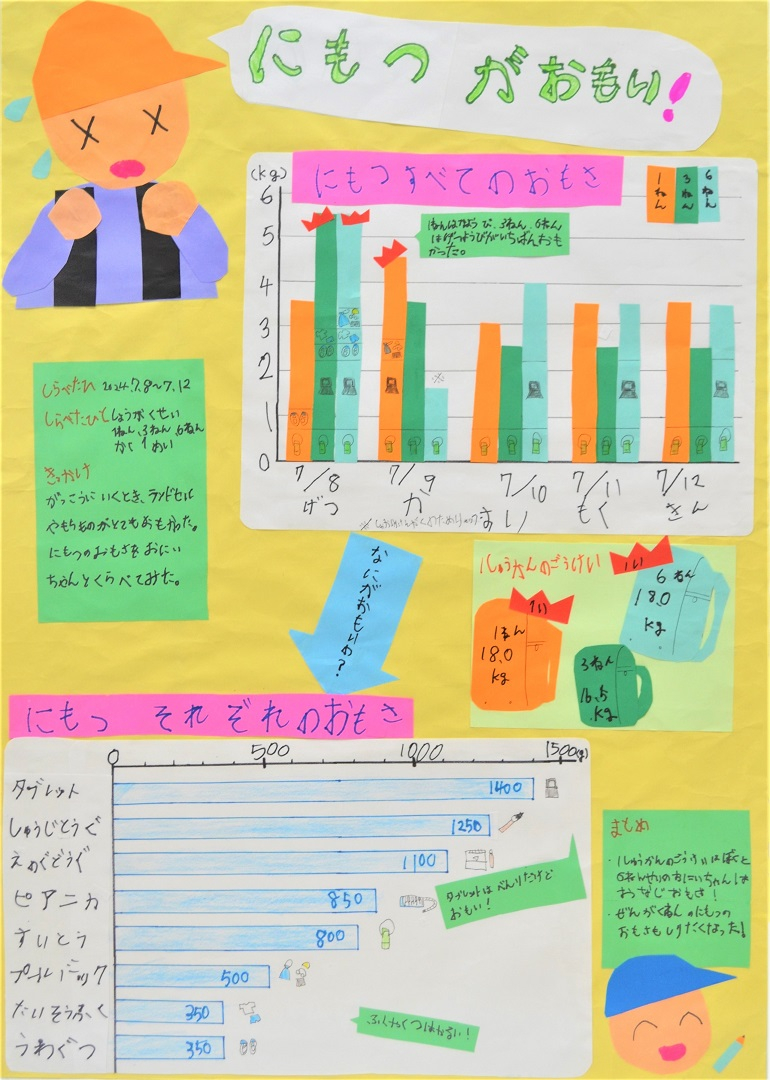 にもつ がおもい!
にもつすべてのおもさ
(kg)
6
5
4
3
2
1
0
1ねん
3ねん
6ねん
1ねんはかようび、3ねん、6ねん
はげつようびがいちばんおも
かった。
7/8
げつ
7/9
か
7/10
すい
7/11
もく
7/12
きん
しらべたひ 2024.7.8〜7.12
しらべたひと しょうがくせい
1ねん、3ねん、6ねん
かく1めい
きっかけ
がっこうにいくとき、ランドセル
やもちものがとてもおもかった。
にもつのおもさをおにい
ちゃんとくらべてみた。
なにがおもいの?
1しゅうかんのごうけい
1い
1ねん
18.0
kg
1い
6ねん
18.0
kg
3ねん
16.5
kg
にもつ それぞれのおもさ
0 500 1000 1500(g)
タブレット 1400
しゅうじどうぐ 1250
えのぐどうぐ 1100
ピアニカ 850
すいとう 800
プールバック 500
たいそうふく 350
うわぐつ 350
タブレットはべんりだけど
おもい!
まとめ
・1しゅうかんのごうけいはぼくと
6ねんせいのおにいちゃんは
おなじおもさ!
・ぜんがくねんのにもつの
おもさもしりたくなった!